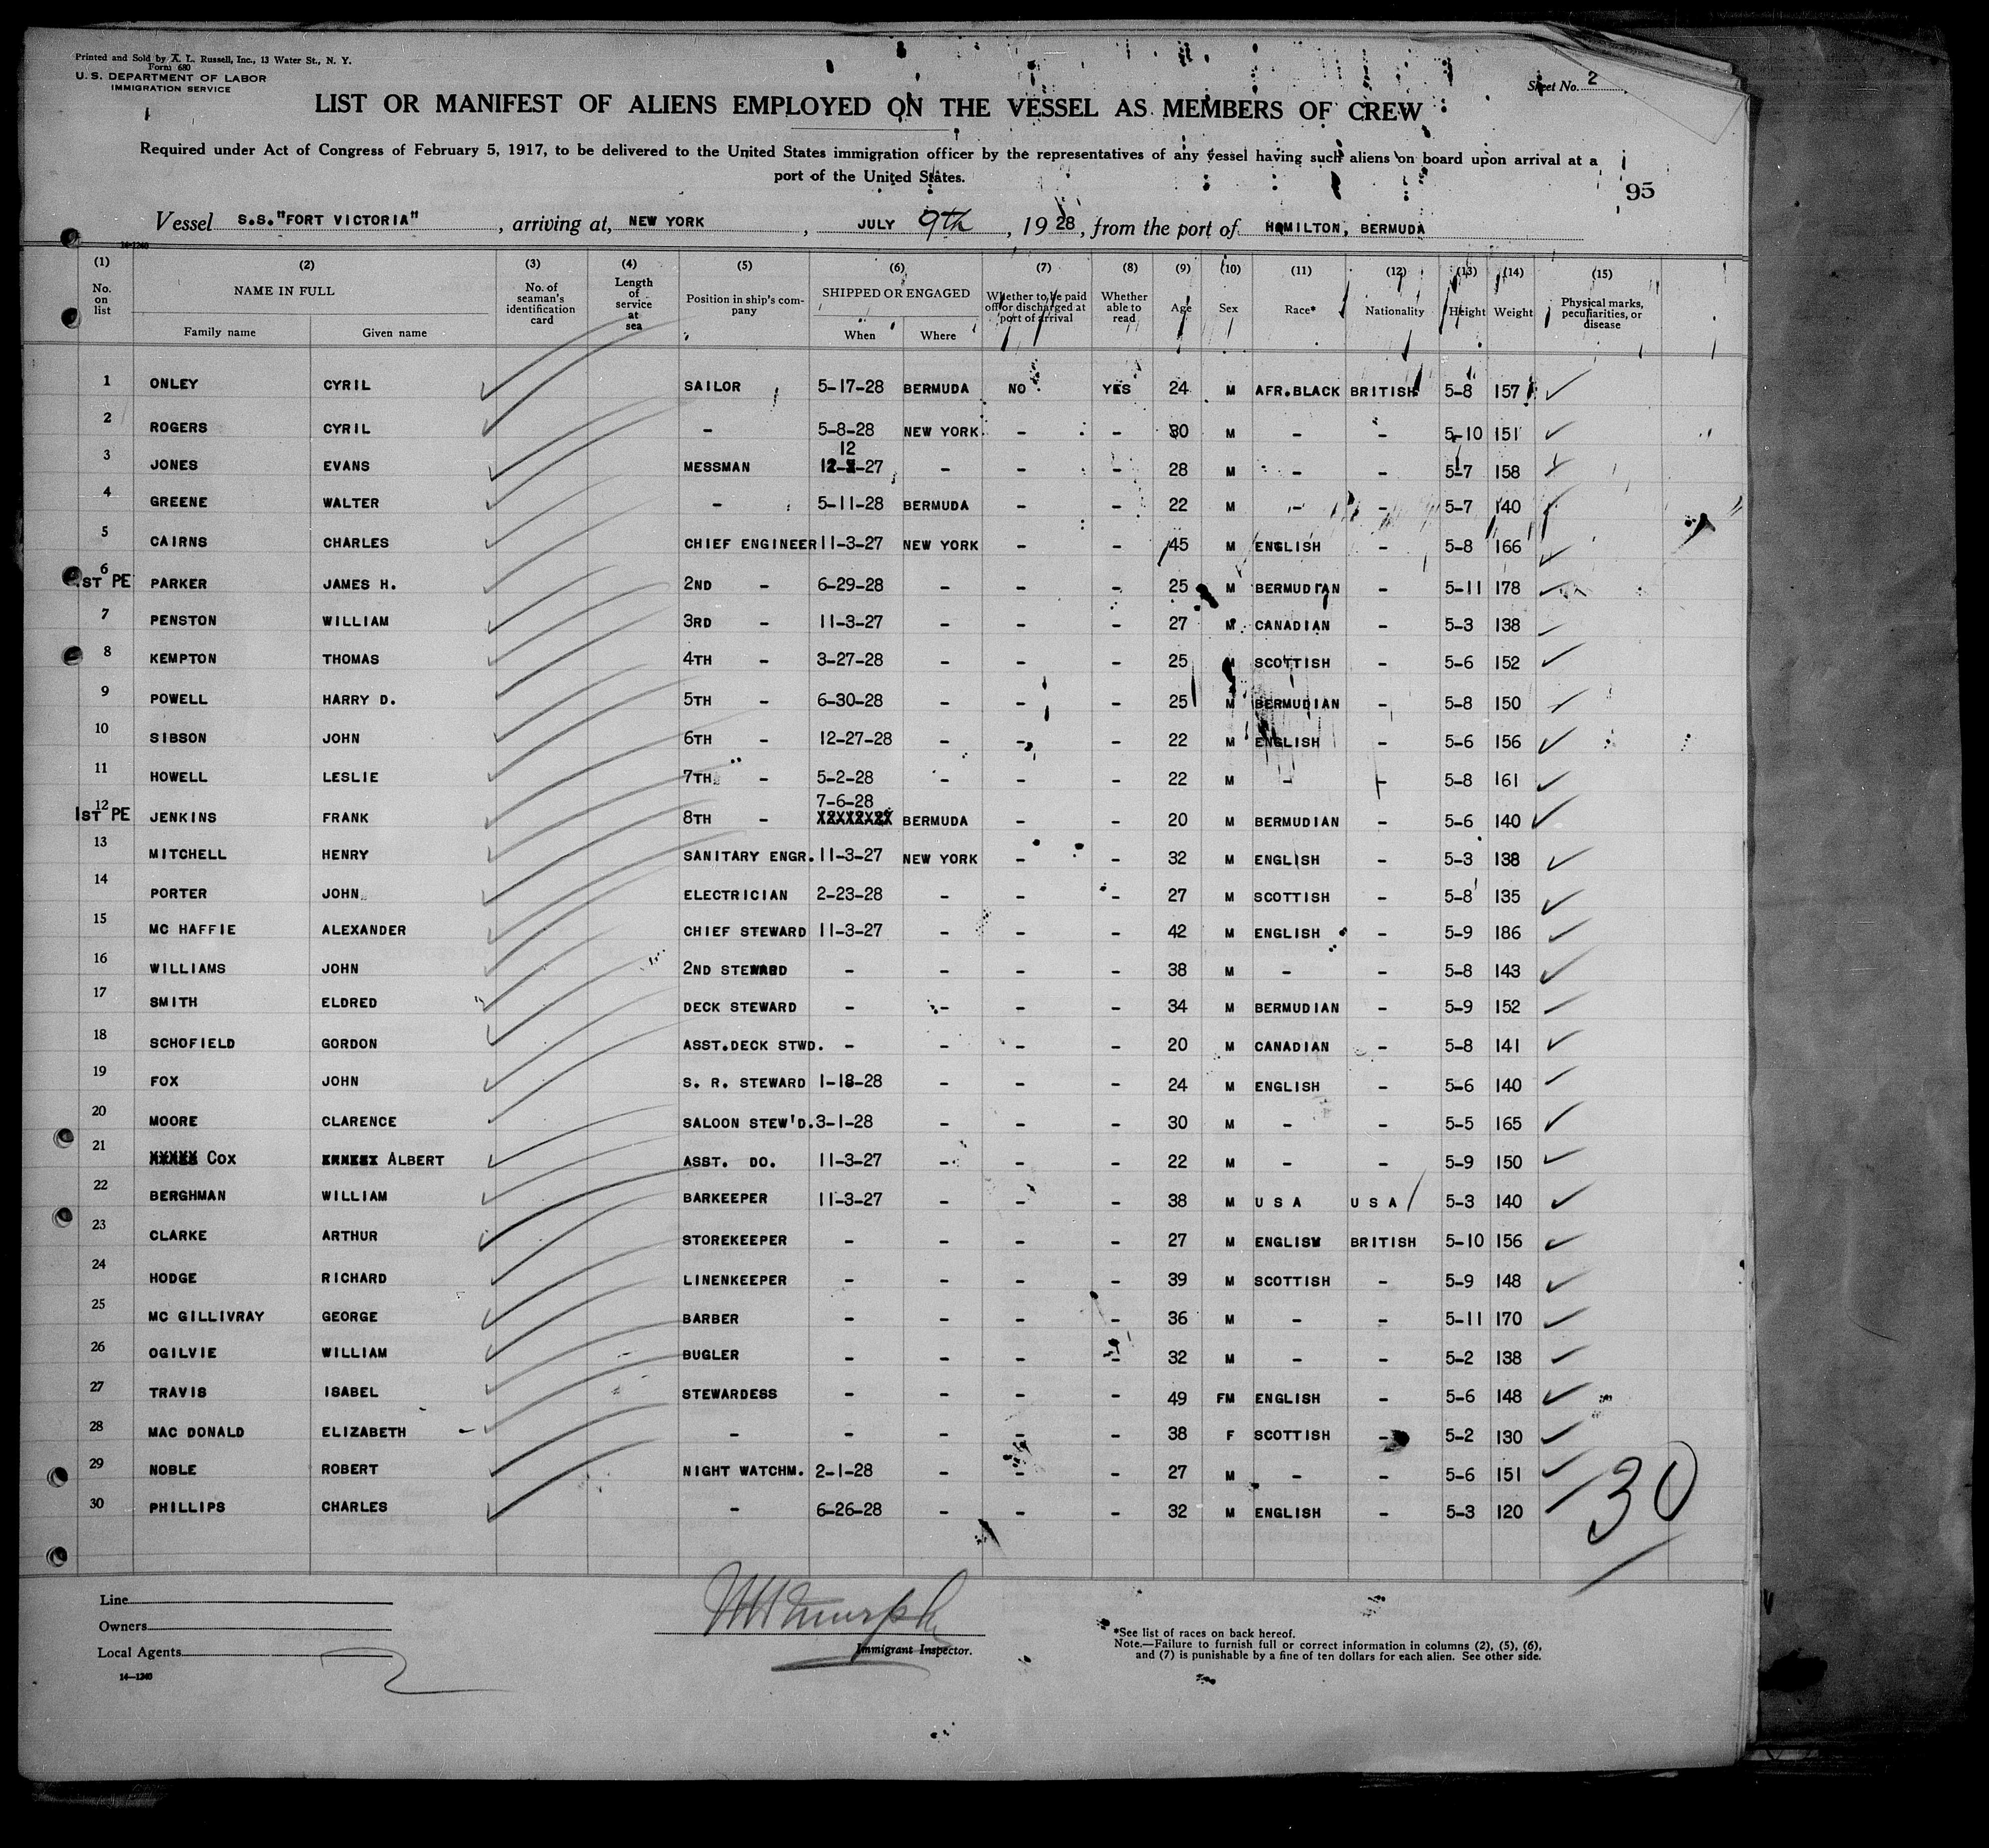 Printed and Sold by A. L. Russell, Inc., 13 Water St., N. Y.
Form 680
U. S. DEPARTMENT OF LABOR
IMMIGRATION SERVICE
Sheet No. 2
LIST OR MANIFEST OF ALIENS EMPLOYED ON THE VESSEL AS MEMBERS OF CREW
Required under Act of Congress of February 5, 1917, to be delivered to the United States immigration officer by the representatives of any vessel having such aliens on board upon arrival at a
port of the United States.
95
Vessel S.S."FORT VICTORIA", arriving at, NEW YORK, JULY 9th, 1928, from the port of HAMILTON, BERMUDA
14-1240
(1) (2) (3) (4) (5) (6) (7) (8) (9) (10) (11) (12) (13) (14) (15)
No. on list NAME IN FULL Family name Given name No. of seaman's identification card Length of service at sea Position in ship's company SHIPPED OR ENGAGED When Where Whether to be paid off or discharged at port of arrival Whether able to read Age Sex Race* Nationality Height Weight Physical marks, peculiarities, or disease
1 ONLEY CYRIL SAILOR 5-17-28 BERMUDA NO YES 24 M AFR.BLACK BRITISH 5-8 157
2 ROGERS CYRIL - 5-8-28 NEW YORK - - 30 M - - 5-10 151
3 JONES EVANS MESSMAN 12 12- -27 - - - 28 M - - 5-7 158
4 GREENE WALTER - 5-11-28 BERMUDA - - 22 M - - 5-7 140
5 CAIRNS CHARLES CHIEF ENGINEER 11-3-27 NEW YORK - - 45 M ENGLISH - 5-8 166
6 1ST PE PARKER JAMES H. 2ND - 6-29-28 - - - 25 M BERMUDIAN - 5-11 178
7 PENSTON WILLIAM 3RD - 11-3-27 - - - 27 M CANADIAN - 5-3 138
8 KEMPTON THOMAS 4TH - 3-27-28 - - - 25 M SCOTTISH - 5-6 152
9 POWELL HARRY D. 5TH - 6-30-28 - - - 25 M BERMUDIAN - 5-8 150
10 SIBSON JOHN 6TH - 12-27-28 - - - 22 M ENGLISH - 5-6 156
11 HOWELL LESLIE 7TH - 5-2-28 - - - 22 M - - 5-8 161
12 1ST PE JENKINS FRANK 8TH - 7-6-28 BERMUDA - - 20 M BERMUDIAN - 5-6 140
13 MITCHELL HENRY SANITARY ENGR. 11-3-27 NEW YORK - - 32 M ENGLISH - 5-3 138
14 PORTER JOHN ELECTRICIAN 2-23-28 - - - 27 M SCOTTISH - 5-8 135
15 MC HAFFIE ALEXANDER CHIEF STEWARD 11-3-27 - - - 42 M ENGLISH - 5-9 186
16 WILLIAMS JOHN 2ND STEWARD - - - - 38 M - - 5-8 143
17 SMITH ELDRED DECK STEWARD - - - - 34 M BERMUDIAN - 5-9 152
18 SCHOFIELD GORDON ASST.DECK STWD. - - - - 20 M CANADIAN - 5-8 141
19 FOX JOHN S. R. STEWARD 1-18-28 - - - 24 M ENGLISH - 5-6 140
20 MOORE CLARENCE SALOON STEW'D. 3-1-28 - - - 30 M - - 5-5 165
21 COX ALBERT ASST. DO. 11-3-27 - - - 22 M - - 5-9 150
22 BERGHMAN WILLIAM BARKEEPER 11-3-27 - - - 38 M U S A U S A 5-3 140
23 CLARKE ARTHUR STOREKEEPER - - - - 27 M ENGLISH BRITISH 5-10 156
24 HODGE RICHARD LINENKEEPER - - - - 39 M SCOTTISH - 5-9 148
25 MC GILLIVRAY GEORGE BARBER - - - - 36 M - - 5-11 170
26 OGILVIE WILLIAM BUGLER - - - - 32 M - - 5-2 138
27 TRAVIS ISABEL STEWARDESS - - - - 49 FM ENGLISH - 5-6 148
28 MAC DONALD ELIZABETH - - - - - 38 F SCOTTISH - 5-2 130
29 NOBLE ROBERT NIGHT WATCHM. 2-1-28 - - - 27 M - - 5-6 151
30 PHILLIPS CHARLES - 6-26-28 - - - 32 M ENGLISH - 5-3 120
30
Line
Owners
Local Agents
14-1240
Immigrant Inspector.
*See list of races on back hereof.
Note.—Failure to furnish full or correct information in columns (2), (5), (6),
and (7) is punishable by a fine of ten dollars for each alien. See other side.